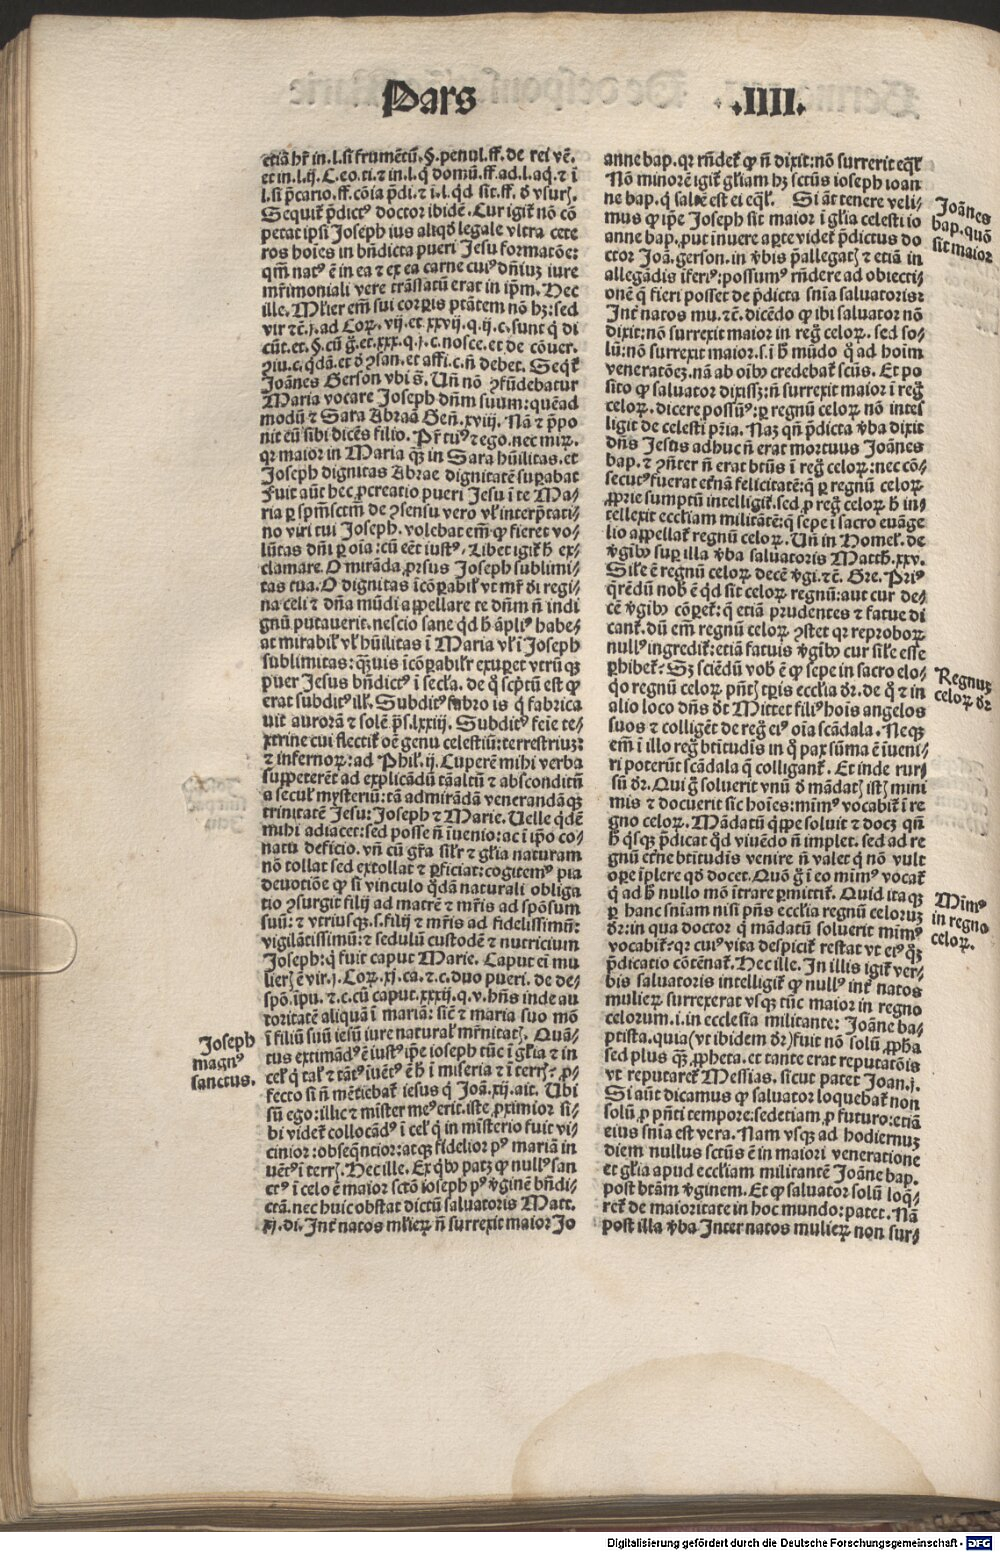 Pars .IIII.
etiā hr̄ in.l.si frumētū.§.penul.ff.de rei vē.
et in.l.ij.C.eo.ti.⁊ in.l.q̄ domū.ff.ad.l.aq̄.⁊ ī
l.si p̄cario.ff.cōia p̄di.⁊ ī.l.qd̄ sit.ff.
Sequit̄ p̄dictꝰ doctor ibidē. Cur igit̄ nō cō
petat ipsi Joseph ius aliqd̄ legale vltra cete
ros hoīes in bn̄dicta pueri Jesu formatōe:
qm̄ natꝰ ē in ea ⁊ ex ea carne cuiꝰ dn̄iuꝫ iure
mr̄imoniali vere trāslatū erat in ip̄m. Hec
ille. Mlier em̄ sui corꝑis ptātem nō hꝫ: sed
vir ⁊ē.j.ad Coꝝ.vij.et xxvij.q.ij.c.sunt q̄ di
cūt.et.§.cū g̊.et.xxx.q.j.c.nosce.et de cōuer.
ꝯiu.c.qdā.et ꝺ ꝯsan.et affi.c.n̄ debet. Seqt̄
Joānes Gerson vbi s̄. Vn̄ nō ꝯfūdebatur
Maria vocare Joseph dn̄m suum: quēad
modū ⁊ Sara Abraā Gen̄.xviij. Nā ⁊ p̄po
nit eū sibi dicēs filio. Pr̄ tuꝰ ⁊ ego. nec miꝝ.
qꝛ maior in Maria qꝫ in Sara hūilitas. et
Joseph dignitas Abrae dignitatē suꝑabat
Fuit aūt hec ꝓcreatio pueri Jesu ī te Ma-
ria ꝑ sp̄msctm̄ de ꝯsensu vero vl̄ interp̄tati-
no viri tui Joseph. volebat em̄ ꝙ fieret vo-
lūtas dn̄i ꝑ oīa: cū eēt iustꝰ. Libet igit̄ h̄ ex-
clamare. O mirāda ꝓrsus Joseph sublimi-
tas tua. O dignitas īcōꝑabil̄ vt mr̄ di regi-
na celi ⁊ dn̄a mūdi appellare te dn̄m n̄ indi
gnū putauerit. nescio sane qd h̄ āpliꝰ habe-
at mirabil̄ vl̄ hūilitas ī Maria vl̄ ī Joseph
sublimitas: qꝫuis īcōꝑabilr̄ exuꝑet vtrūqꝫ
puer Jesus bn̄dictꝰ ī secl̄a. de q̊ scp̄tū est ꝙ
erat subditꝰ ill̄. Subditꝰ fabro is q̄ fabrica
uit aurorā ⁊ solē p̄s.lxxiij. Subditꝰ feīe te-
xtrine cui flectit̄ oē genu celestiū: terrestriuꝫ:
⁊ infernoꝝ: ad Phil̄.ij. Cuperē mihi verba
suppeterēt ad explicādū tāaltū ⁊ absconditū
a secul̄ mysteriū: tā admirādā venerandāqꝫ
trinitatē Jesu: Joseph ⁊ Marie. Uelle qdē
mihi adiacet: sed posse n̄ īuenio: ac ī ip̄o co-
natu deficio. vn̄ cū gr̄a silr̄ ⁊ gl̄ia naturam
nō tollat sed extollat ⁊ ꝑficiat: cogitemꝰ pia
deuotiōe ꝙ si vinculo qdā naturali obliga
tio ꝯsurgit filij ad matrē ⁊ mr̄is ad spōsum
suū: ⁊ vtriusqꝫ.s.filij ⁊ mr̄is ad fidelissimū:
vigilātissimū: ⁊ sedulū custodē ⁊ nutricium
Joseph: q̄ fuit caput Marie. Caput eī mu
lieris ē vir.j.Coꝝ.xj.ca.⁊.c.duo pueri. de de-
spō.īpu.⁊.c.cū caput.xxxij.q.v.hn̄s inde au
toritatē aliquam ī mariā: sicē ⁊ maria suo mō
ī filiū suū iesū iure natural̄ mr̄nitatꝭ. Quā-
tus extimādꝰ ē iustꝰ ip̄e ioseph tūc ī gl̄ia ⁊ in
cel̄ q̄ tal̄ ⁊ tātꝰ īuētꝰ ē h̄ ī miseria ⁊ ī terrꝭ? ꝓ-
fecto si n̄ mētiebat̄ iesus q̄ Joā.xij.ait. Ubi
sū ego: illic ⁊ mīster meꝰ erit. iste ꝓximior si-
bi videt̄ collocādꝰ ī cel̄ q̄ in mīsterio fuit vi-
cinior: obseqn̄tior: atqꝫ fidelior pꝰ mariā in
uētꝰ ī terrꝭ. Hec ille. Ex qbꝰ patꝫ ꝙ nullꝰ san
ctꝰ ī celo ē maior sctō ioseph pꝰ vgīnē bn̄di-
ctā. nec huic obstat dictū saluatoris Matt.
xj.di. Int̄ natos ml̄ieꝝ n̄ surrexit maior Jo
Joseph
magnꝰ
sanctus.
anne bap. qꝛ rn̄det̄ ꝙ n̄ dixit: nō surrexit eql̄
Nō minorē igit̄ gl̄iam hꝫ sctūs ioseph ioan
ne bap. q̄ saltē est ei eql̄. Si āt tenere veli-
mus ꝙ ip̄e Joseph sit maior ī gl̄ia celesti io
anne bap. put īnuere aꝑte videt̄ p̄dictus do
ctor Joā.gerson. in vbis p̄allegatꝭ ⁊ etiā in
allegādis īferiꝰ: possumꝰ rn̄dere ad obiecti-
onē q̄ fieri posset de p̄dicta sn̄ia saluatoris:
Int̄ natos mu.⁊ē. dicēdo ꝙ ibi saluator nō
dixit: nō surrexit maior in reg̊ celoꝝ. sed so-
lū: nō surrexit maior.s.ī h̄ mūdo q̊ ad hoim
veneratōeꝫ. nā ab oībꝰ credebat̄ scūs. Et po
sito ꝙ saluator dixissꝫ: n̄ surrexit maior ī reg̊
celoꝝ. dicere possūꝰ: ꝑ regnū celoꝝ nō intel
ligit de celesti pr̄ia. Naꝫ qn̄ p̄dicta vba dixit
dn̄s Jesus adhuc n̄ erat mortuus Joānes
bap. ⁊ ꝯn̄ter n̄ erat btūs ī reg̊ celoꝝ: nec cō-
secutꝰ fuerat etnā felicitatē: q̄ ꝑ regnū celoꝝ
ꝓprie sumptū intelligit̄. sed ꝑ reg̊ celoꝝ h̄ in-
tellexit eccl̄iam militātē: q̄ sepe ī sacro euāge
lio appellat̄ regnū celoꝝ. Vn̄ in Homel̄. de
vgībꝰ suꝑ illa vba saluatoris Matth.xxv.
Sil̄e ē regnū celoꝝ decē vgi.⁊ē. Gre. Priꝰ
qrēdū nob̄ ē qd̄ sit celoꝝ regnū: aut cur de-
cē vgībꝰ cōꝑet̄: q̄ etiā prudentes ⁊ fatue di
cant̄. dū em̄ regnū celoꝝ ꝯstet qꝛ reproboꝝ
nullꝰ ingredit̄: etiā fatuis vgībꝰ cur sil̄e esse
ꝑhibet̄? Sꝫ sciēdū vob̄ ē ꝙ sepe in sacro elo-
qo regnū celoꝝ pn̄tꝭ tꝑis eccl̄ia dr̄. de q̊ ⁊ in
alio loco dn̄s dt̄ Mittet filiꝰ hois angelos
suos ⁊ colligēt de reg̊ eiꝰ oīa scādala. Neqꝫ
em̄ ī illo reg̊ btitudīs in q̊ pax sūma ē īueni-
ri poterūt scādala q̄ colligant̄. Et inde rur-
sū dr̄. Qui g̊ soluerit vnū ꝺ mādatꝭ istꝭ mini
mis ⁊ docuerit sic hoīes: mīmꝰ vocabit̄ ī re
gno celoꝝ. Mādatū q̄ppe soluit ⁊ docꝫ qn̄
h̄ qsqꝫ p̄dicat qd̄ viuēdo n̄ implet. sed ad re
gnū etn̄e btitudis venire n̄ valet q̄ nō vult
oꝑe īplere qd̄ docet. Quō g̊ ī eo mīmꝰ vocat̄
q̄ ad h̄ nullo mō ītrare ꝑmittit̄. Quid itaqꝫ
ꝑ hanc sniam nisi pn̄s eccl̄ia regnū celoruꝫ
dr̄: in qua doctor q̄ mādatū soluerit mīmꝰ
vocabit̄: qꝛ cuiꝰ vita despicit̄ restat vt eiꝰ q̊ꝫ
p̄dicatio cōtēnat̄. Hec ille. In illis igit̄ ver-
bis saluatoris intelligit̄ ꝙ nullꝰ int̄ natos
mulieꝝ surrexerat vsqꝫ tūc maior in regno
celorum.i.in ecclesia militante: Joāne ba-
ptista. quia (vt ibidem dr̄) fuit nō solū ꝓpha
sed plus qꝫ ꝓpheta. et tante erat reputatōis
vt reputaret̄ Messias. sicut patet Joan.j.
Si aūt dicamus ꝙ saluator loquebat̄ non
solū ꝓ pn̄ti tempore: sed etiam ꝓ futuro: etiā
eius sn̄ia est vera. Nam vsqꝫ ad hodiernuꝫ
diem nullus sctūs ē in maiori veneratione
et gl̄ia apud eccl̄iam militantē Joāne bap.
post btām vginem. Et ꝙ saluator solū loq̄-
ret̄ de maioritate in hoc mundo: patet. Nā
post illa vba Inter natos mulieꝝ non sur-
Joānes
bap. quō
sit maior
Regnuꝫ
celoꝝ dr̄
Mīmꝰ
in regno
celoꝝ.
Digitalisierung gefördert durch die Deutsche Forschungsgemeinschaft - DFG